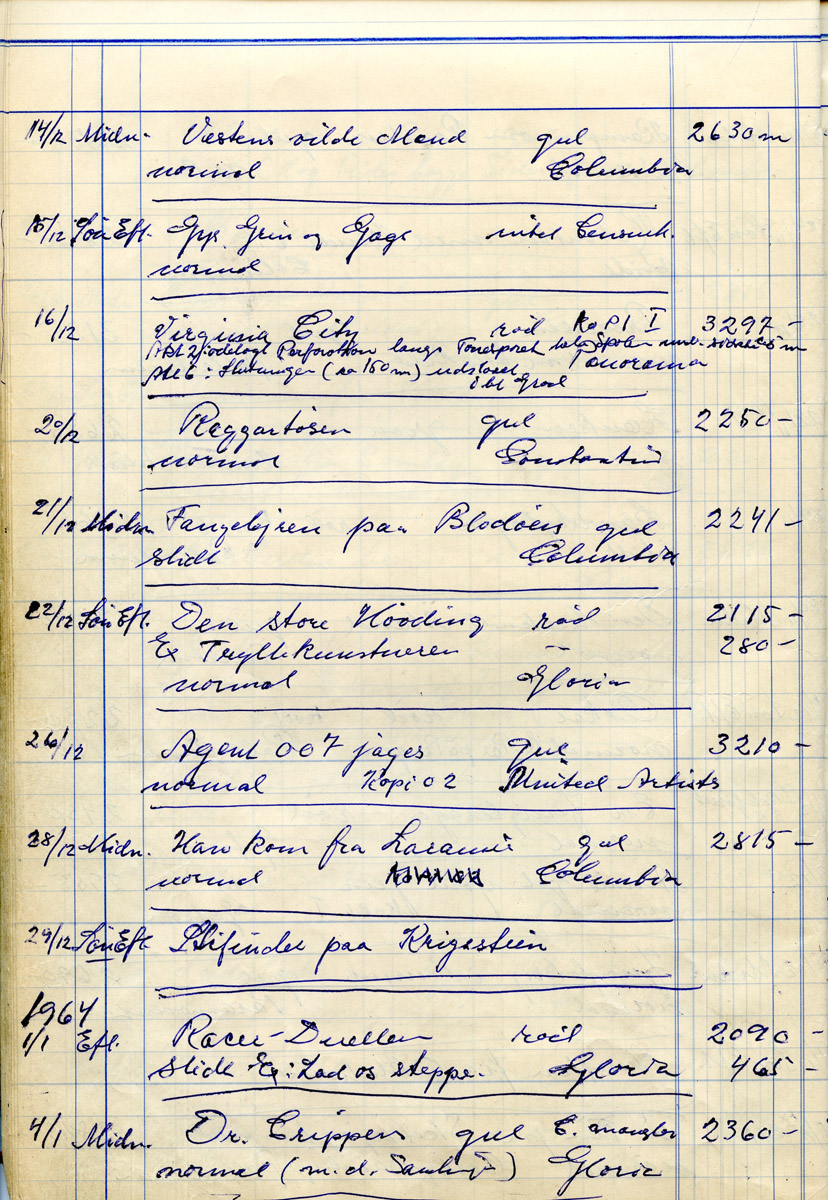 14/12 Midn. Vestens vilde Mand gul 2630 m
normal Columbia
15/12 Søn Eft. Gys, Grin og Gags intet Censurk.
normal
16/12 Virginia City rød Kopi I 3297 -
Akt 2: ødelagt Perforation langs Tonesporet hele Spolen
Akt 6: Slutningen (ca 150 m) udslidt Tonorama
20/12 Raggartøsen gul 2250 -
normal Constantin
21/12 Midn. Fangelejren paa Blodøen gul 2241 -
slidt Columbia
22/12 Søn Eft. Den store Høvding rød 2115 -
Ex Tryllekunstneren - 280 -
normal Gloria
26/12 Agent 007 jages gul 3210 -
normal Kopi 02 United Artists
28/12 Midn. Han kom fra Laramie gul 2815 -
normal Columbia
29/12 Søn Eft. Stifinder paa Krigsstien
1964
1/1 Eft. Racer-Duellen rød 2090 -
slidt Ex: Lad os steppe. Gloria 465 -
4/1 Midn. Dr. Crippen gul C. mangler 2360 -
normal (m. d. ) Gloria